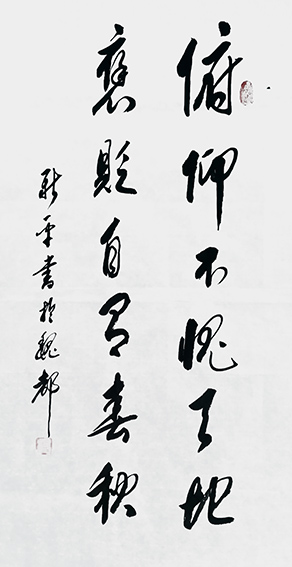 俯仰不愧天地
褒贬自有春秋
新平書於魏都